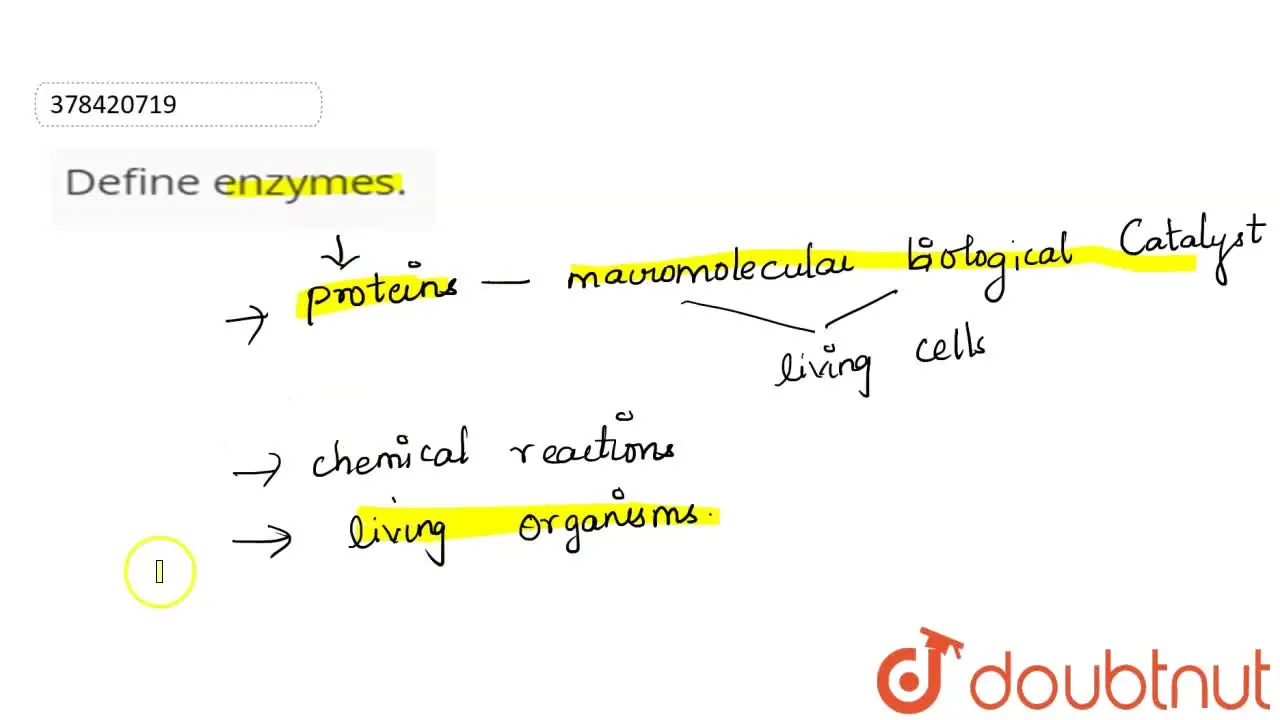 378420719
Define enzymes.
proteins — macromolecular biological Catalyst
living cells
→ chemical reactions
→ living organisms.
doubtnut